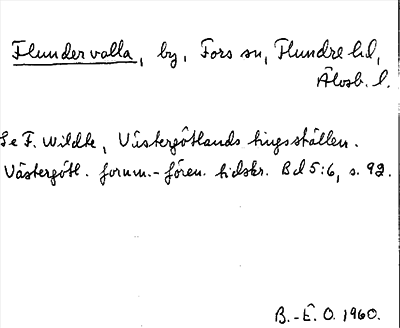 Flundervalla, by, Fors sn, Flundre hd,
Älvsb. l.
Se F. Wildte, Västergötlands tingsställen.
Västergötl. fornm.-fören. tidskr. Bd 5:6, s. 92.
B.-E. O. 1960.